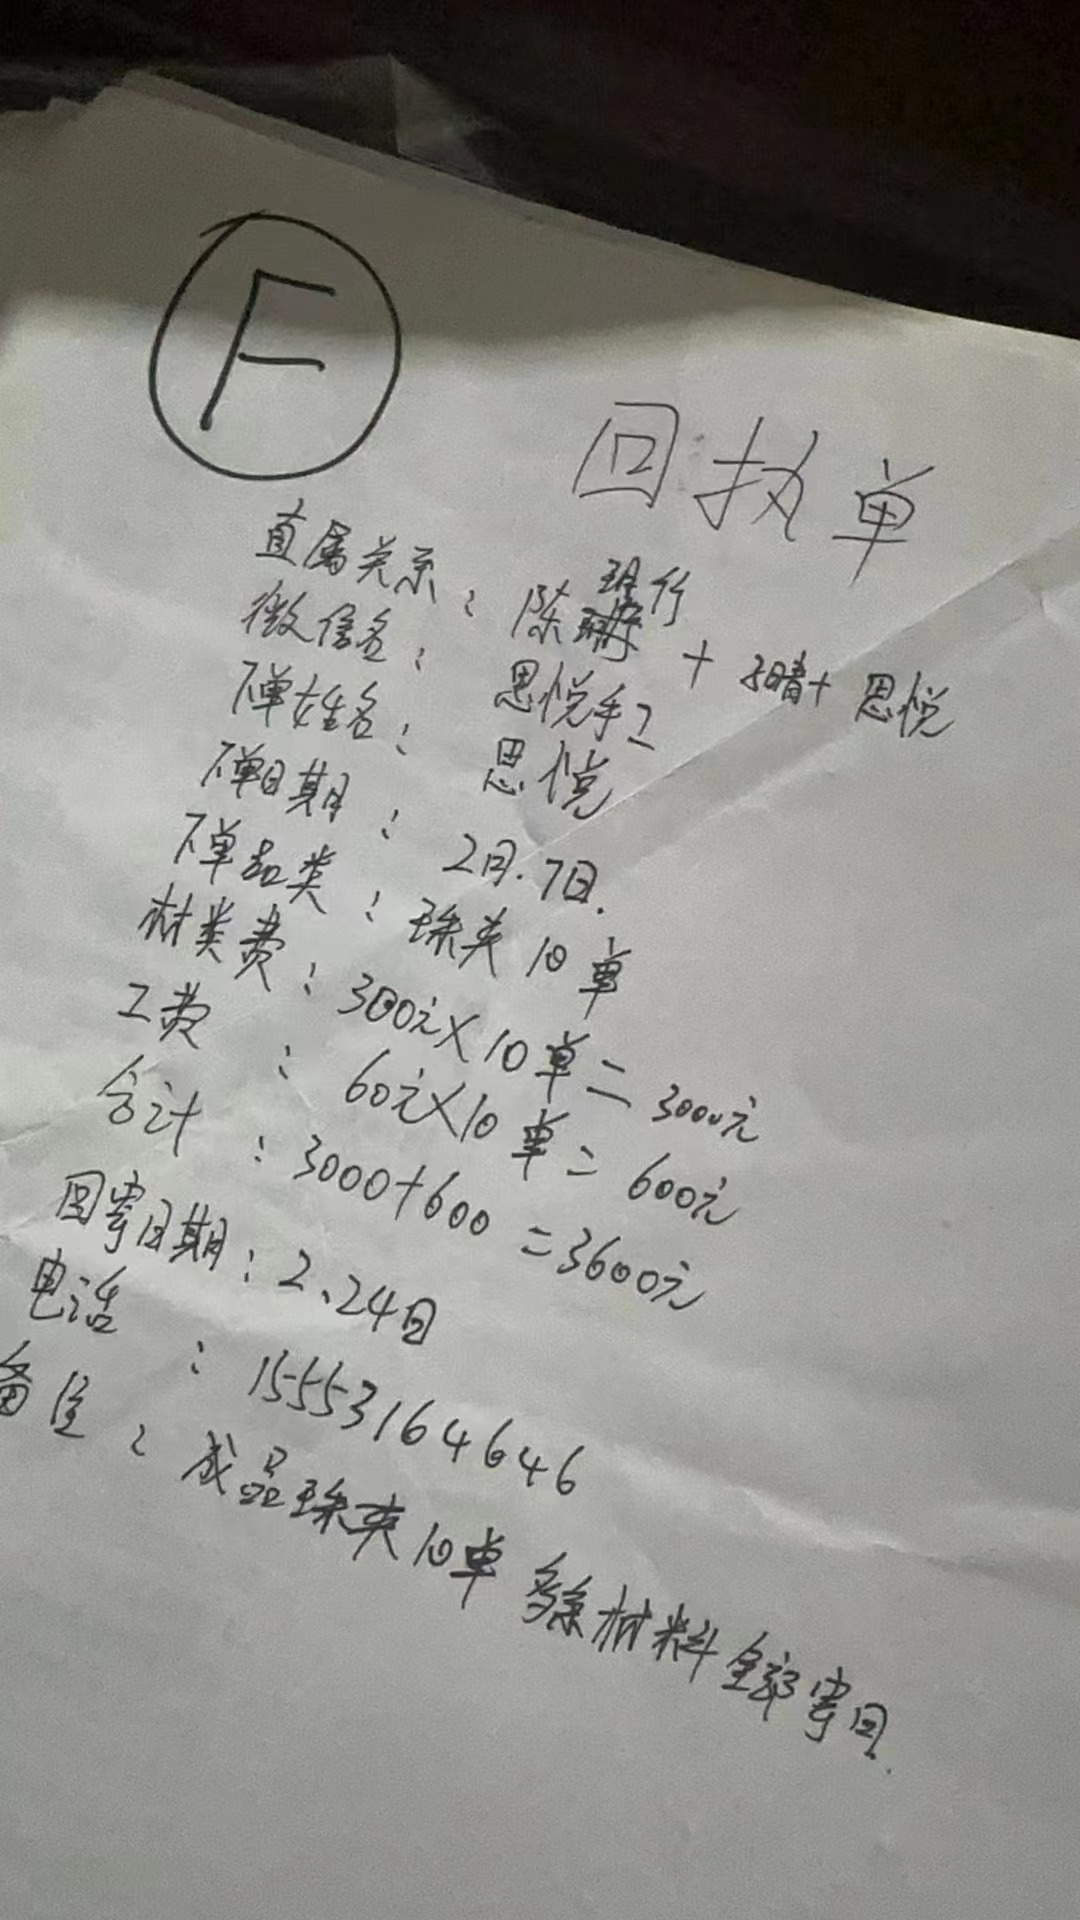 F
回执单
直属关系：陈珊行+ 晴+思悦
微信名：思悦手工
下单姓名：思悦
下单日期：2月.7日.
下单品类：珠夹10单
材类费：300元×10单=3000元
工费：60元×10单=600元
合计：3000+600=3600元
回寄日期：2、24日
电话：15553164646
备注：成品珠夹10单 多余材料全部寄回.